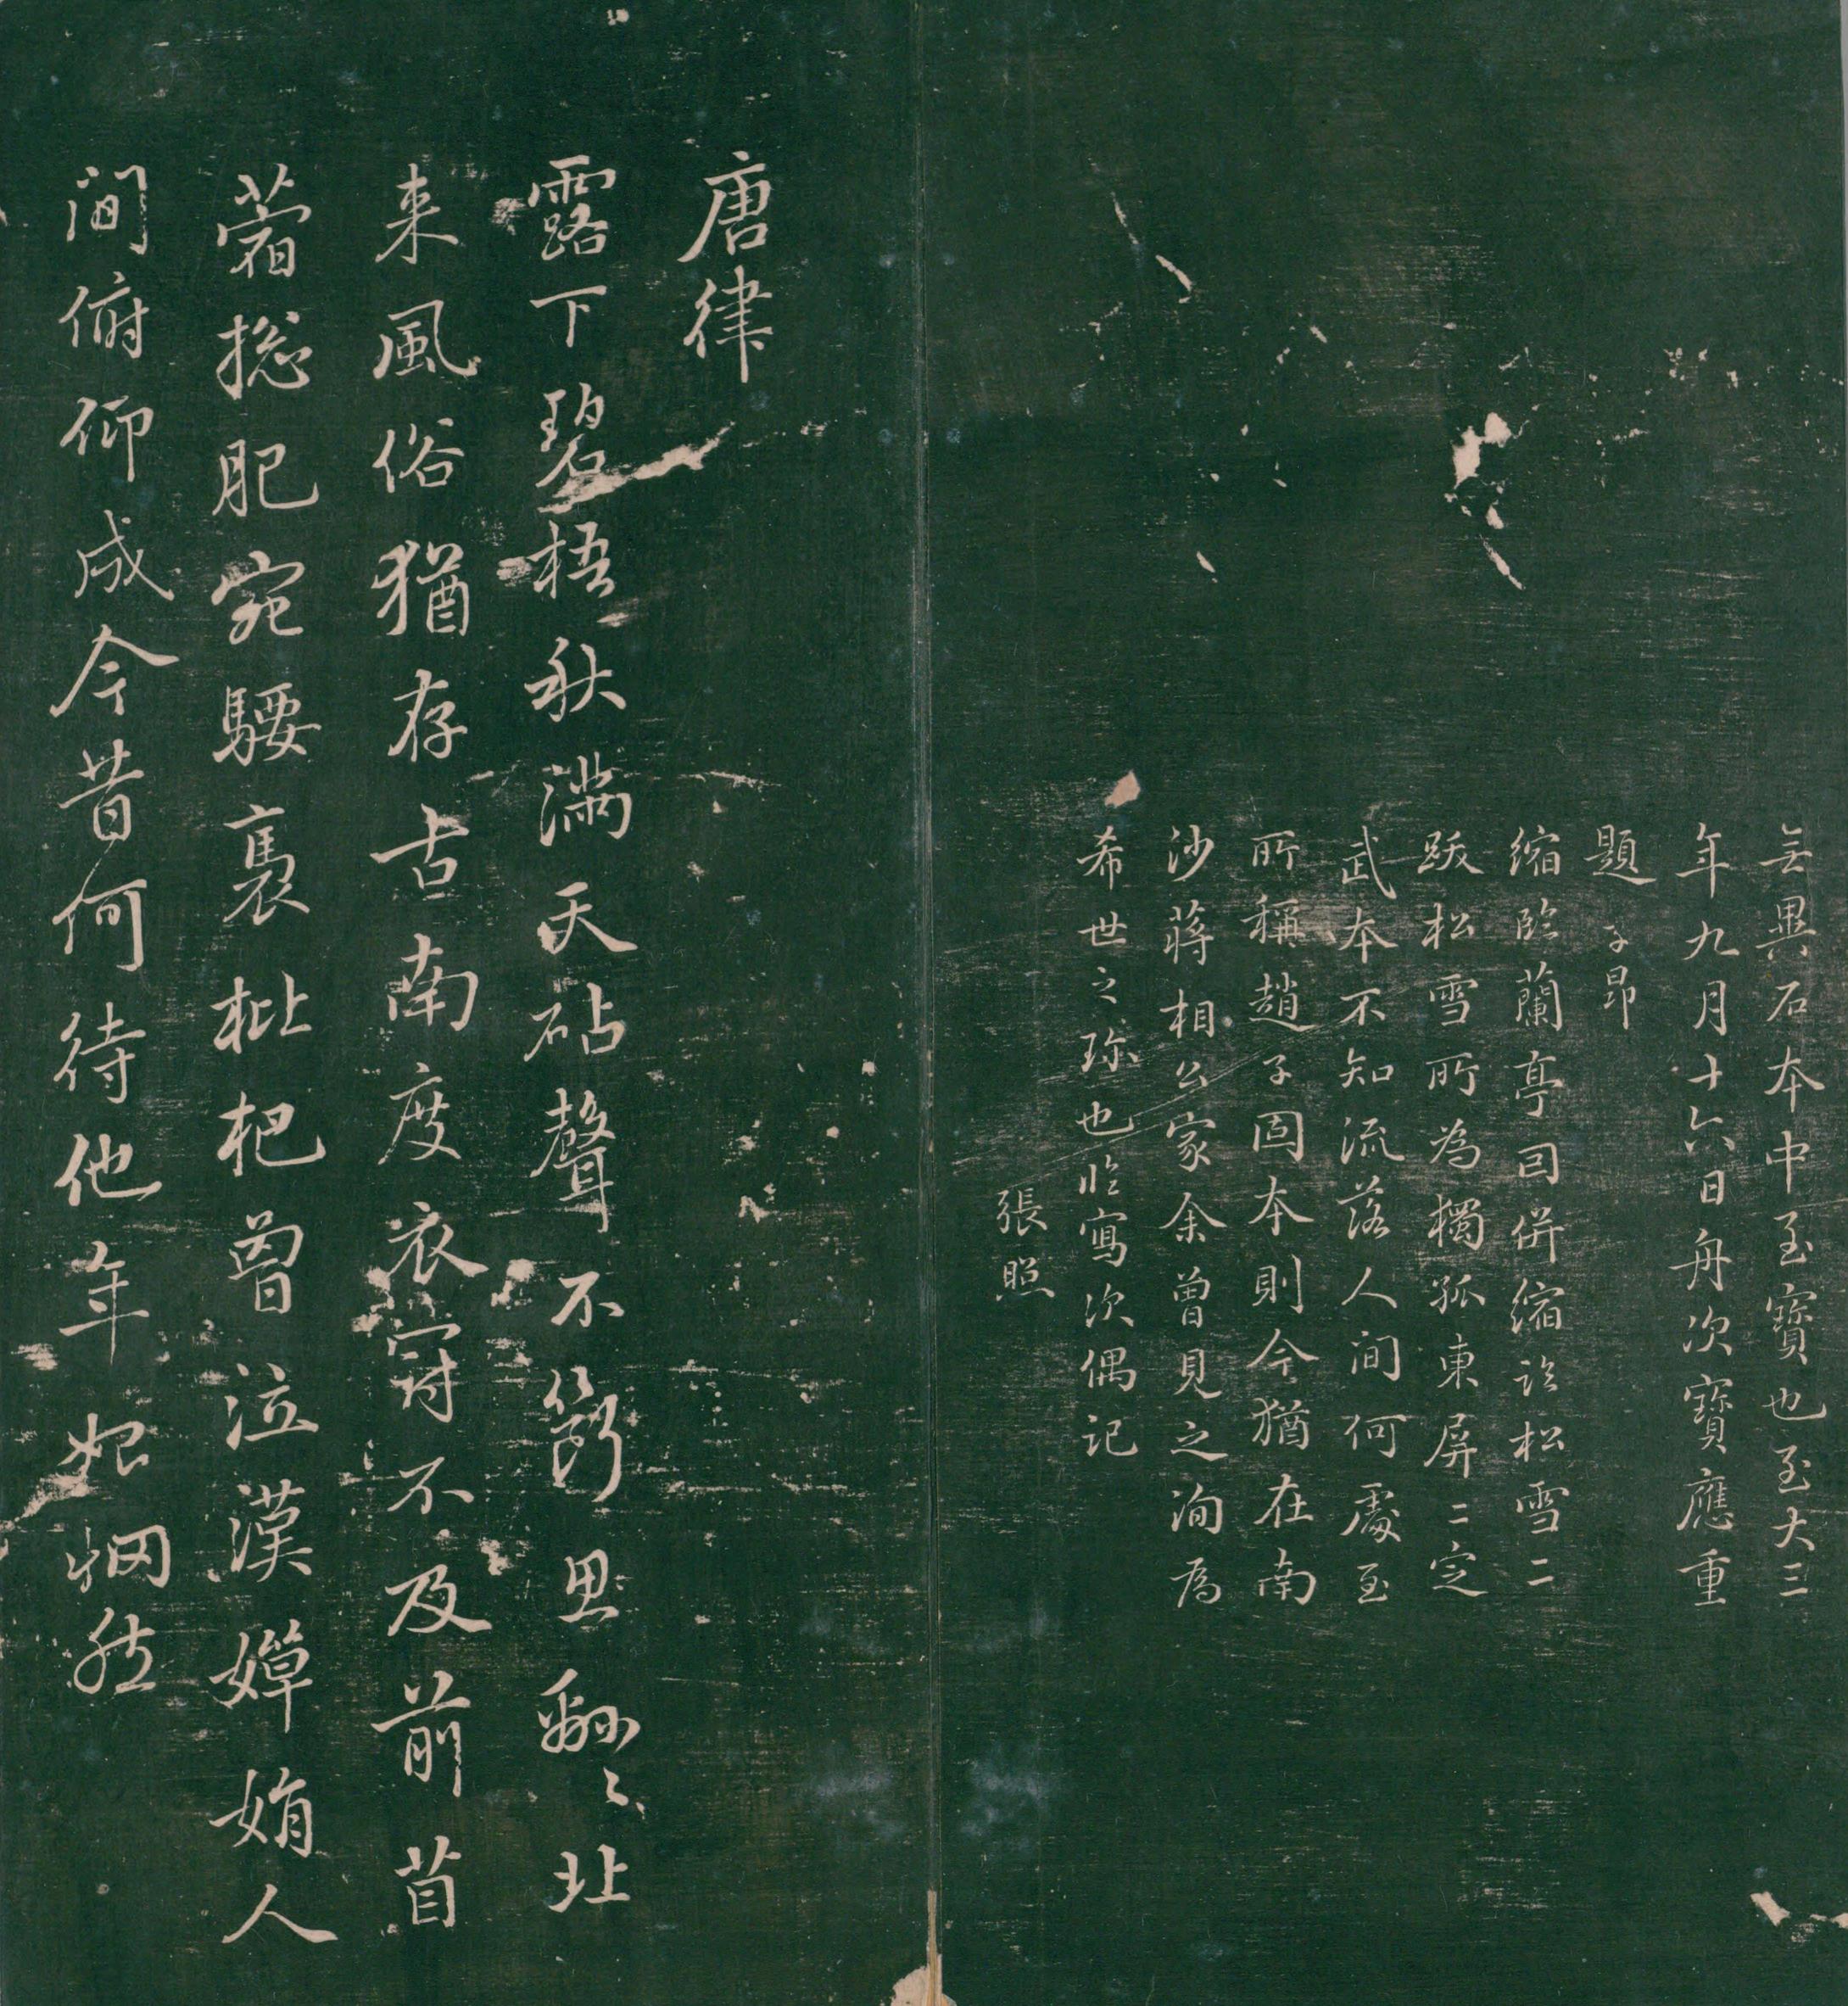 无異石本中至寶也至大三
年九月十六日舟次寶應重
題 子昂
縮臨蘭亭因併縮臨松雪二
跋松雪所為獨孤東屏二定
武本不知流落人間何處至
所稱趙子固本則今猶在南
沙蔣相公家余曾見之洵為
希世之珎也臨寫次偶記
張照
唐律
露下碧梧秋滿天砧聲不斷思綿〻北
来風俗猶存古南度衣冠不及前苜
蓿捴肥宛騕褭枇杷曾泣漢嬋娟人
間俯仰成今昔何待他年始惘然